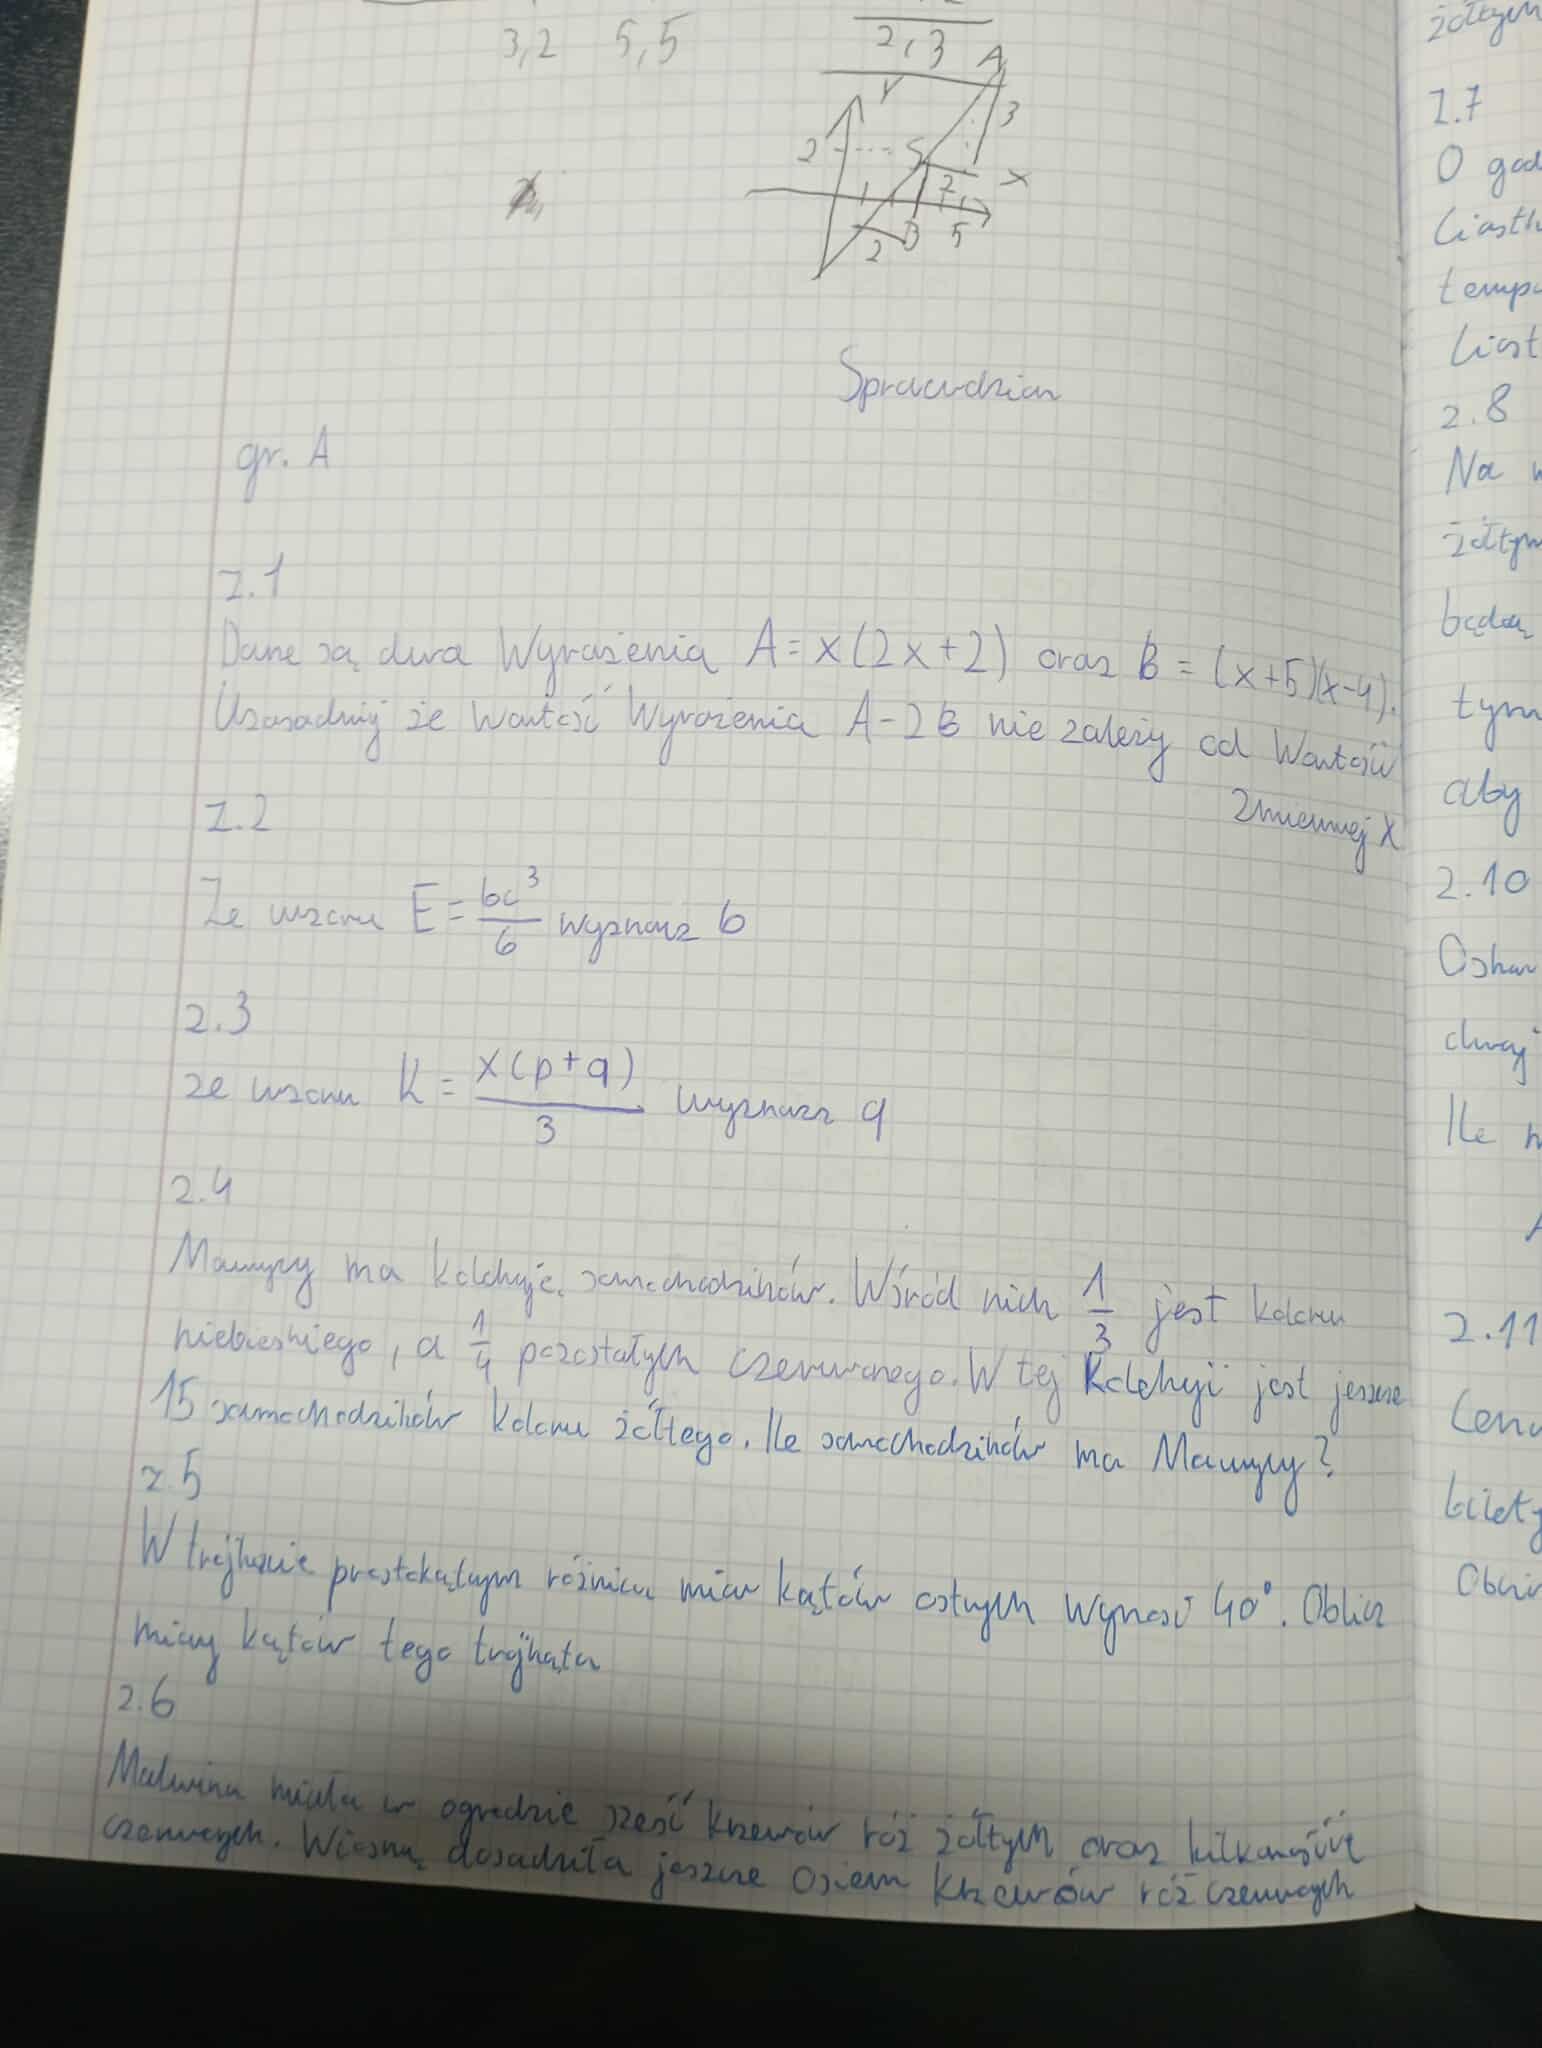 3,2 5,5
2,3
A
Y
3
2
S
X
2
1
B
5
2
Sprawdzian
gr. A
z.1
Dane są dwa wyrażenia A = x(2x+2) oraz B = (x+5)(x-4).
Uzasadnij że wartość wyrażenia A-2B nie zależy od wartości
zmiennej x
z.2
Ze wzoru E = bc³/6 wyznacz b
z.3
ze wzoru K = x(p+q)/3 wyznacz q
z.4
Maurycy ma kolekcję samochodzików. Wśród nich 1/3 jest koloru
niebieskiego, a 1/4 pozostałych czerwonego. W tej kolekcji jest jeszcze
15 samochodzików koloru żółtego. Ile samochodzików ma Maurycy?
z.5
W trójkącie prostokątnym różnica miar kątów ostrych wynosi 40°. Oblicz
miary kątów tego trójkąta
z.6
Malwina miała w ogrodzie sześć krzewów róż żółtych oraz kilkanaście
czerwonych. Wiosną dosadziła jeszcze osiem krzewów róż czerwonych
żółtych
z.7
O god
ciastk
temp
ciast
z.8
Na w
żółtym
będą
tym
aby
z.10
Oskar
dwaj
Ile
z.11
Cena
bilety
Oblicz